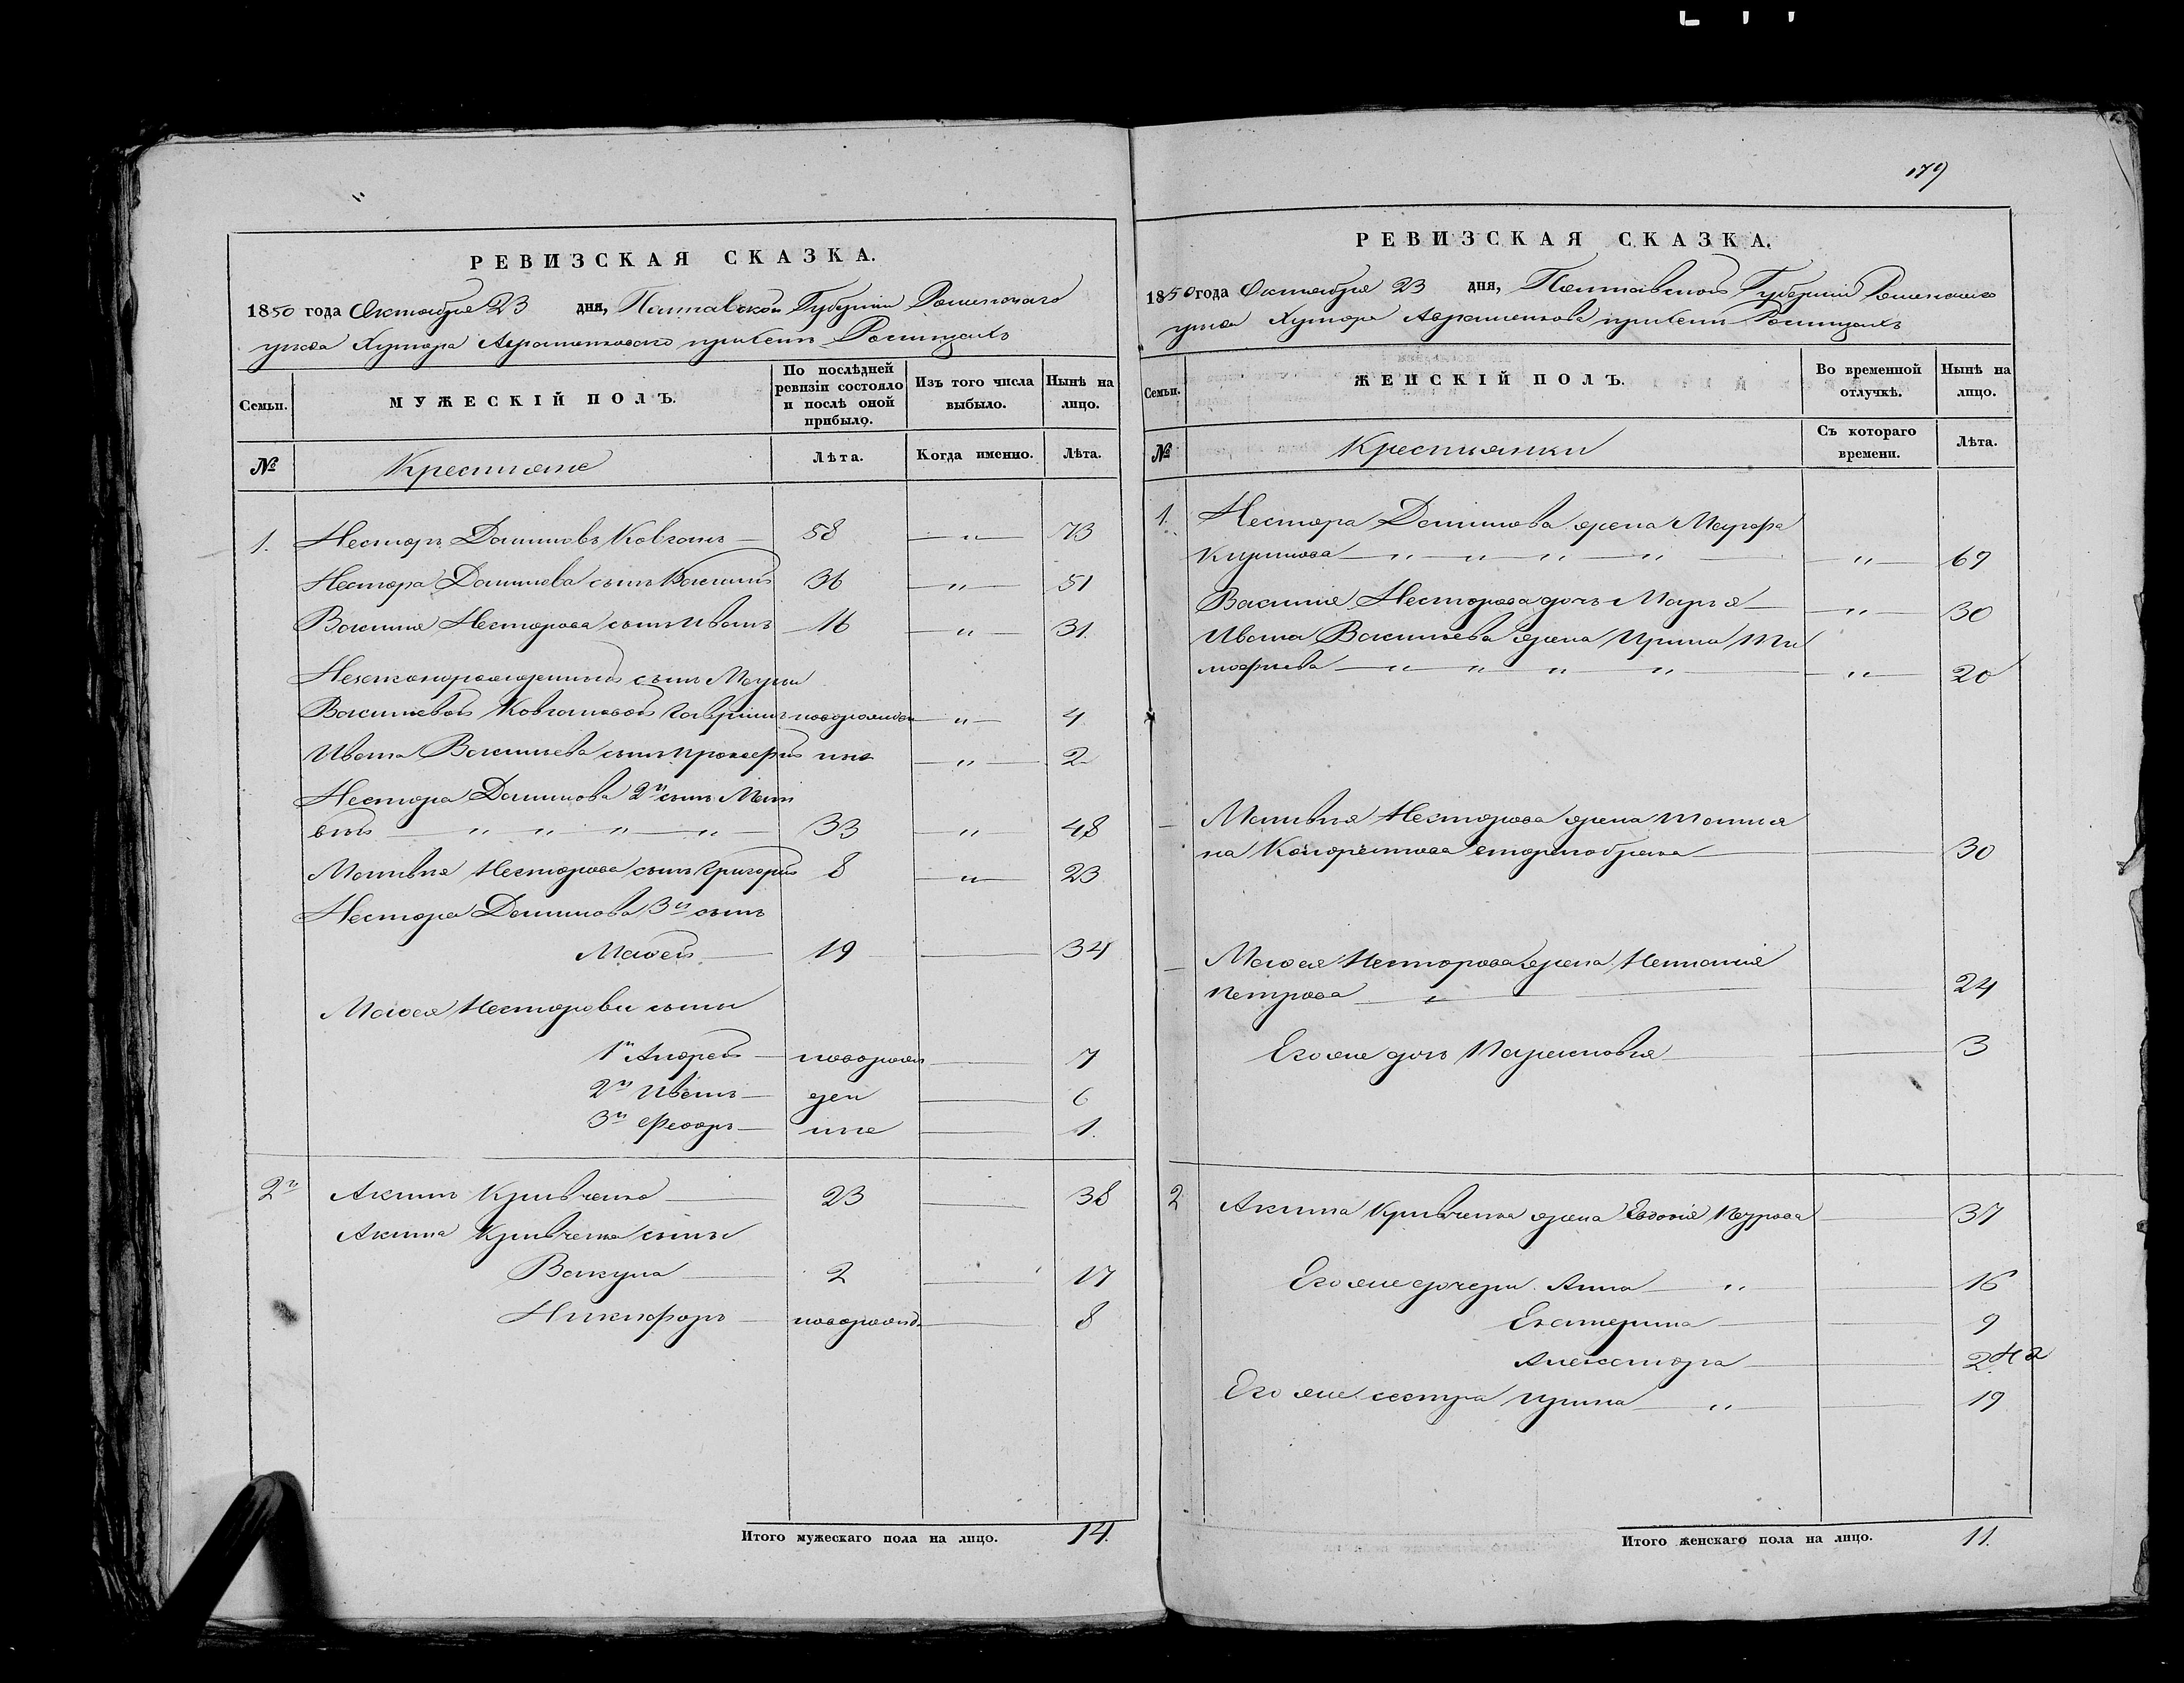 179
РЕВИЗСКАЯ СКАЗКА.
1850 года Октября 23 дня, Полтавской Губернии Роменскаго
уезда Хутора
Семьи.
МУЖЕСКІЙ ПОЛЪ.
По послѣдней ревизіи состояло и послѣ оной прибыло.
Изъ того числа выбыло.
Нынѣ на лицо.
№
Крестьяне
Лѣта.
Когда именно.
Лѣта.
1. Несторъ Даниловъ Ковганъ — 58 — „ — 73
Нестора Данилова сынъ Василій 36 — „ — 51
Василія Нестерова сынъ Иванъ — 16 — „ — 31
Незаконорожденный сынъ Марьи
Васильевой Ковгановой Гаврiилъ новорожден — „ — 4
Ивана Васильева сынъ Прокофій ные — „ — 2
Нестора Данилова 2й сынъ Мат
вѣй — „ „ „ — „ — 33 — „ — 48
Матвѣя Нестерова сынъ Григорій 8 — „ — 23
Нестора Данилова 3й сынъ
Моисей — 19 — 34
Моисея Нестерова сыны
1й Андрей — новорож — 7
2й Иванъ — ден — 6
3й Федоръ — ные — 1.
2й Акимъ Кривченко — 23 — 38
Акима Кривченка сыны
Вакула — 2 — 17
Никифоръ — новорожд. — 8
Итого мужескаго пола на лицо. 14.
РЕВИЗСКАЯ СКАЗКА.
1850 года Октября 23 дня, Полтавской Губерніи Роменскаго
уезда Хутора
Семьи.
ЖЕНСКІЙ ПОЛЪ.
Во временной отлучкѣ.
Нынѣ на лицо.
№
Крестьянки
Съ котораго времени.
Лѣта.
1. Нестора Данилова жена Марфа
— „ „ „ — „ — „ — 69
Василія Нестерова дочь Марья — „ — 30
Ивана Васильева жена Ирина Ти
мофѣева — „ „ „ „ — „ — 20
— Матвѣя Нестерова жена Татья
на Кондратова второбрачна — 30
— Моисея Нестерова жена Наталія
Петрова — „ — 24
Его же дочь Парасковія — 3
2 Акима Кривченка жена Евдокія Петрова — 37
Его же дочери Анна — „ — 16
Екатерина — 9
Александра — 2
Его же сестра Ирина — „ — 19
Итого женскаго пола на лицо. 11.